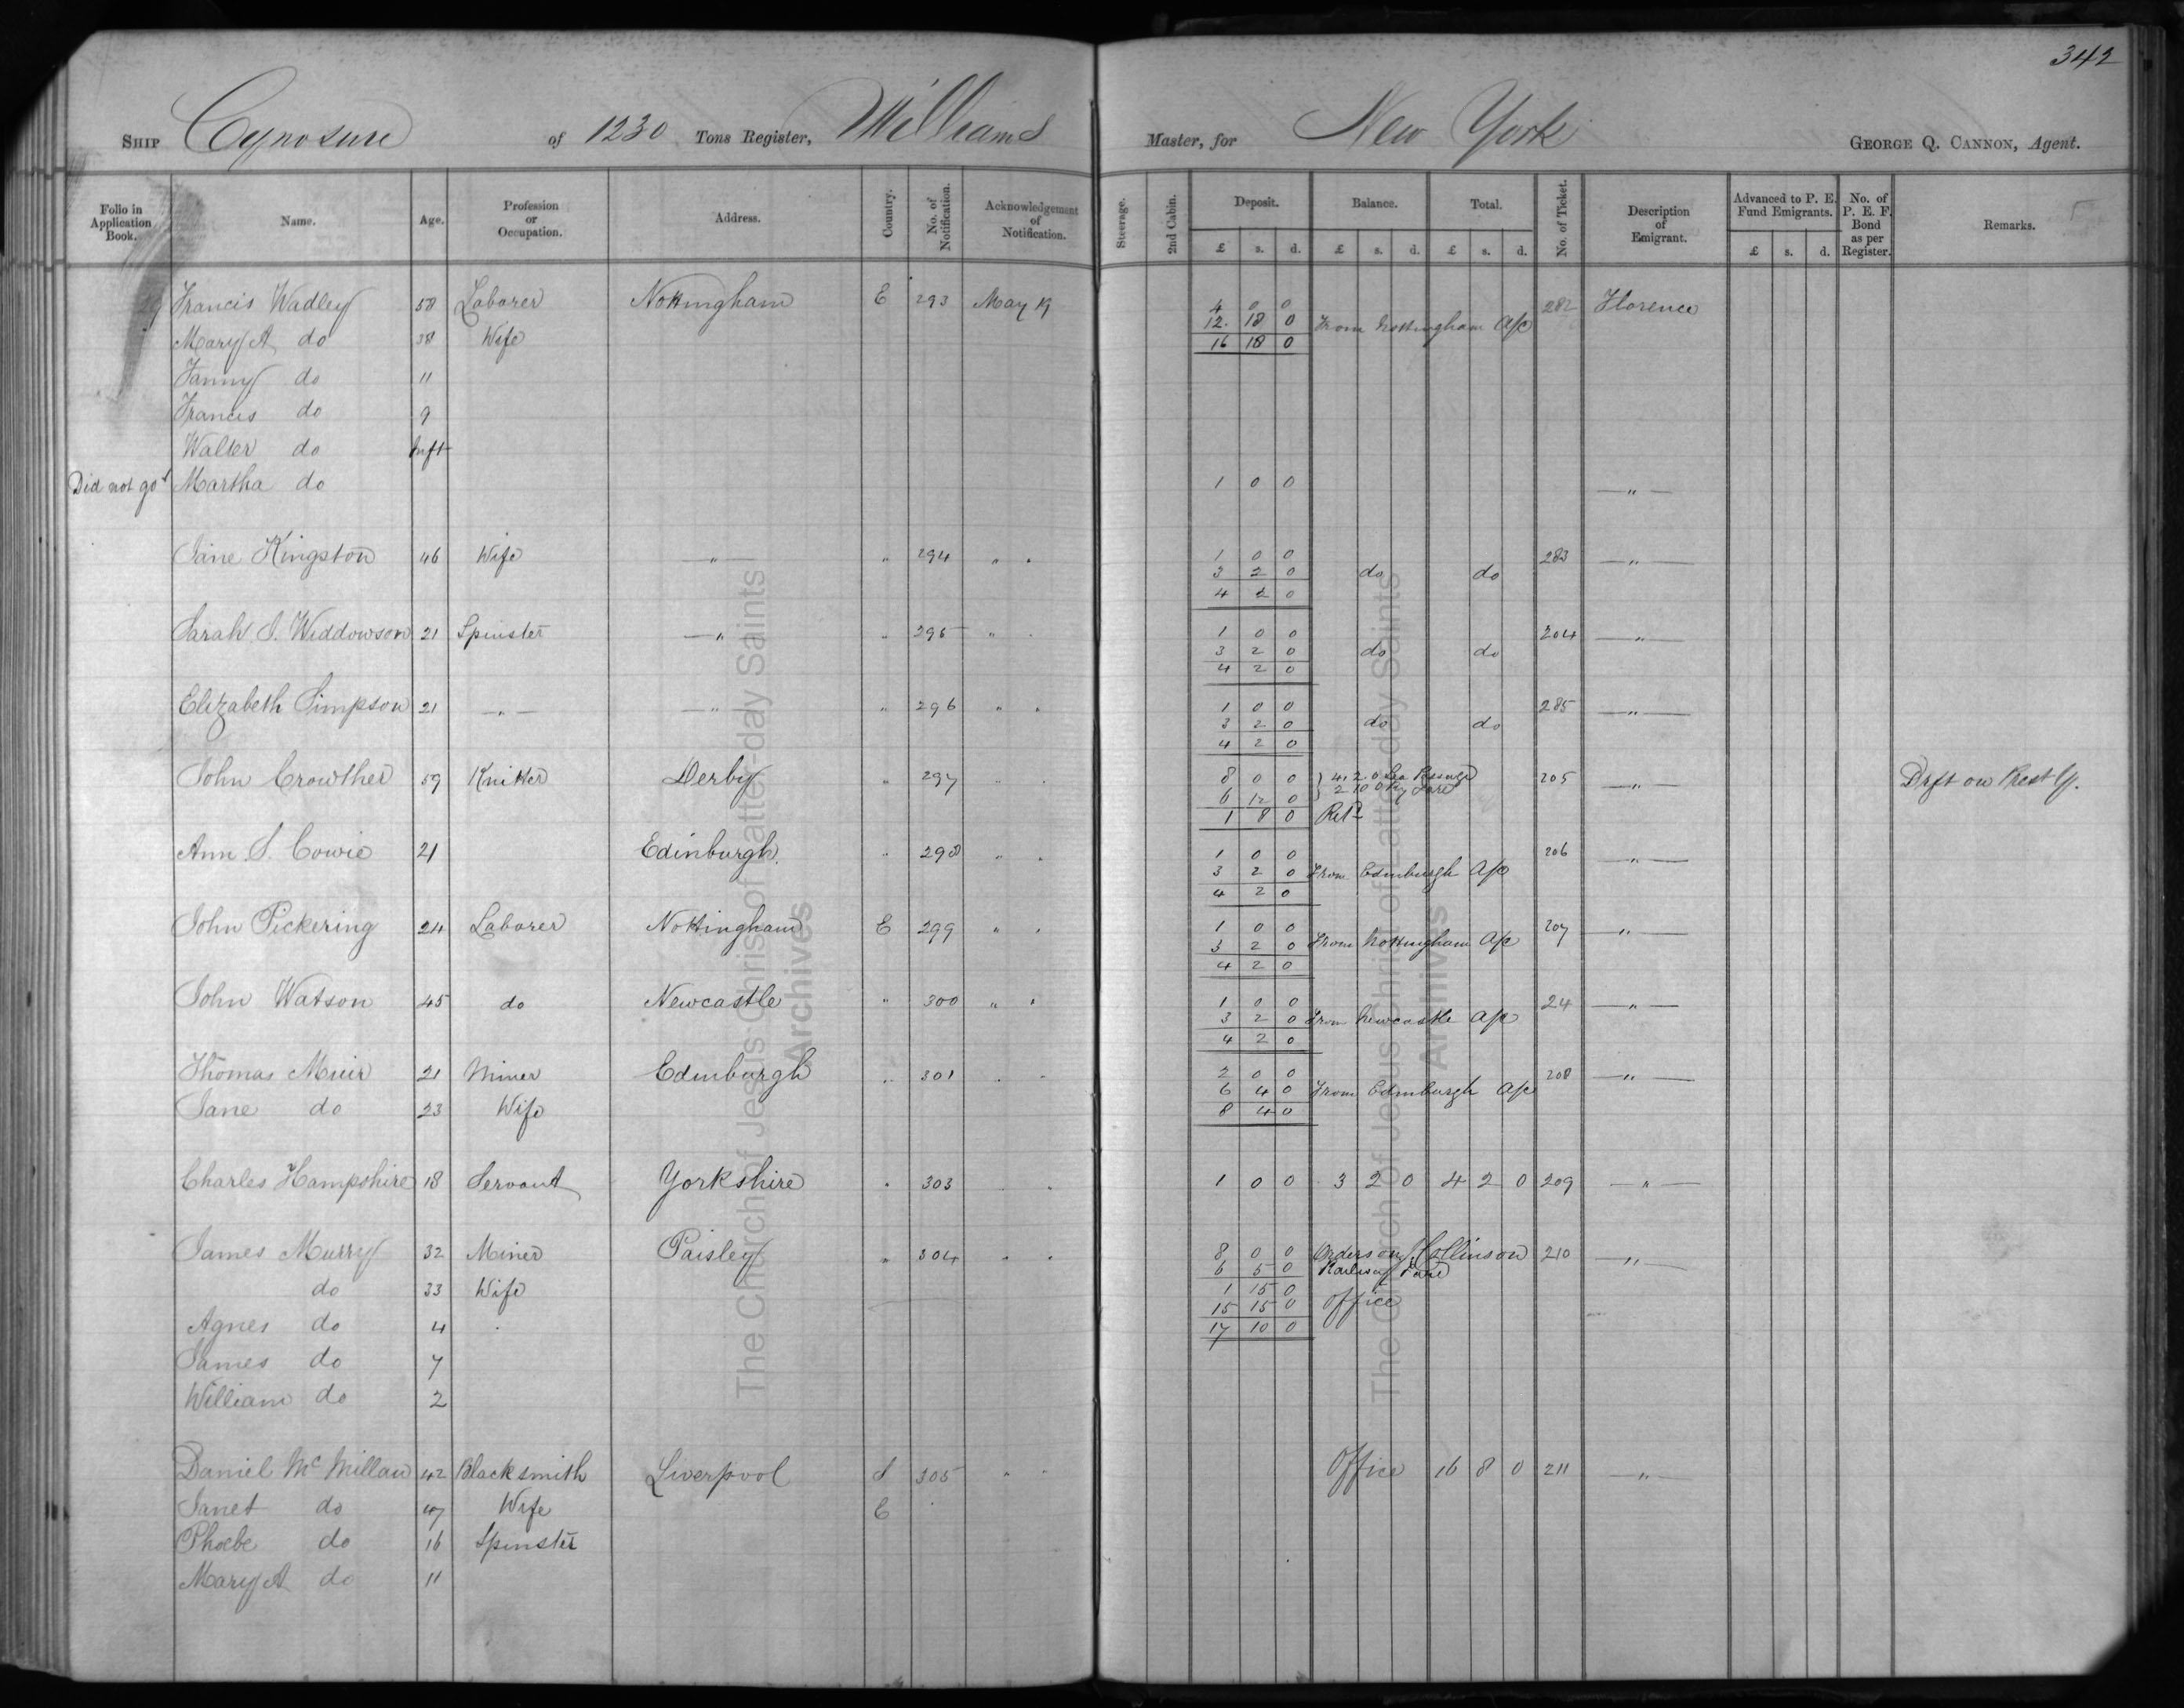 342
SHIP Cynosure of 1230 Tons Register, Williams Master, for New York GEORGE Q. CANNON, Agent.
Folio in Application Book. Name. Age. Profession or Occupation. Address. Country. No. of Notification. Acknowledgement of Notification. Steerage. 2nd Cabin. Deposit. Balance. Total. No. of Ticket. Description of Emigrant. Advanced to P. E. Fund Emigrants. No. of P. E. F. Bond as per Register. Remarks.
£ s. d. £ s. d. £ s. d. £ s. d.
Francis Wadley 58 Laborer Nottingham E 293 May 19 4 0 0 282 Florence
12 18 0 From Nottingham A/c
Mary A do 38 Wife 16 18 0
Fanny do 11
Francis do 9
Walter do Inft
Did not go Martha do 1 0 0 — " —
Jane Kingston 46 Wife — " — " 294 " " 1 0 0 283 — " —
3 2 0 do do
4 2 0
Sarah S. Widdowson 21 Spinster — " — " 295 " " 1 0 0 204 — " —
3 2 0 do do
4 2 0
Elizabeth Simpson 21 — " — — " — " 296 " " 1 0 0 285 — " —
3 2 0 do do
4 2 0
John Crowther 59 Knitter Derby " 297 " " 8 0 0 4. 2. 0 Sea Passage 205 — " — Drft on Prest Y.
6 12 0 2 10 0 Ry Fare
1 8 0 Retd
Ann S. Cowie 21 Edinburgh " 298 " " 1 0 0 206 — " —
3 2 0 From Edinburgh A/c
4 2 0
John Pickering 24 Laborer Nottingham E 299 " " 1 0 0 207 — " —
3 2 0 From Nottingham A/c
4 2 0
John Watson 45 do Newcastle " 300 " " 1 0 0 24 — " —
3 2 0 From Newcastle A/c
4 2 0
Thomas Muir 21 Miner Edinburgh " 301 " " 2 0 0 208 — " —
6 4 0 From Edinburgh A/c
Jane do 23 Wife 8 4 0
Charles Hampshire 18 Servant Yorkshire " 303 " " 1 0 0 3 2 0 4 2 0 209 — " —
James Murry 32 Miner Paisley " 304 " " 8 0 0 Anderson Collinson 210 — " —
6 5 0 Railway Fare
do 33 Wife 1 15 0
15 15 0 Office
Agnes do 4 17 10 0
James do 7
William do 2
Daniel McMillan 42 Blacksmith Liverpool S 305 " " Office 16 8 0 211 — " —
Janet do 47 Wife E
Phoebe do 16 Spinster
Mary A do 11
The Church of Jesus Christ of Latter-day Saints
Archives
The Church of Jesus Christ of Latter-day Saints
Archives